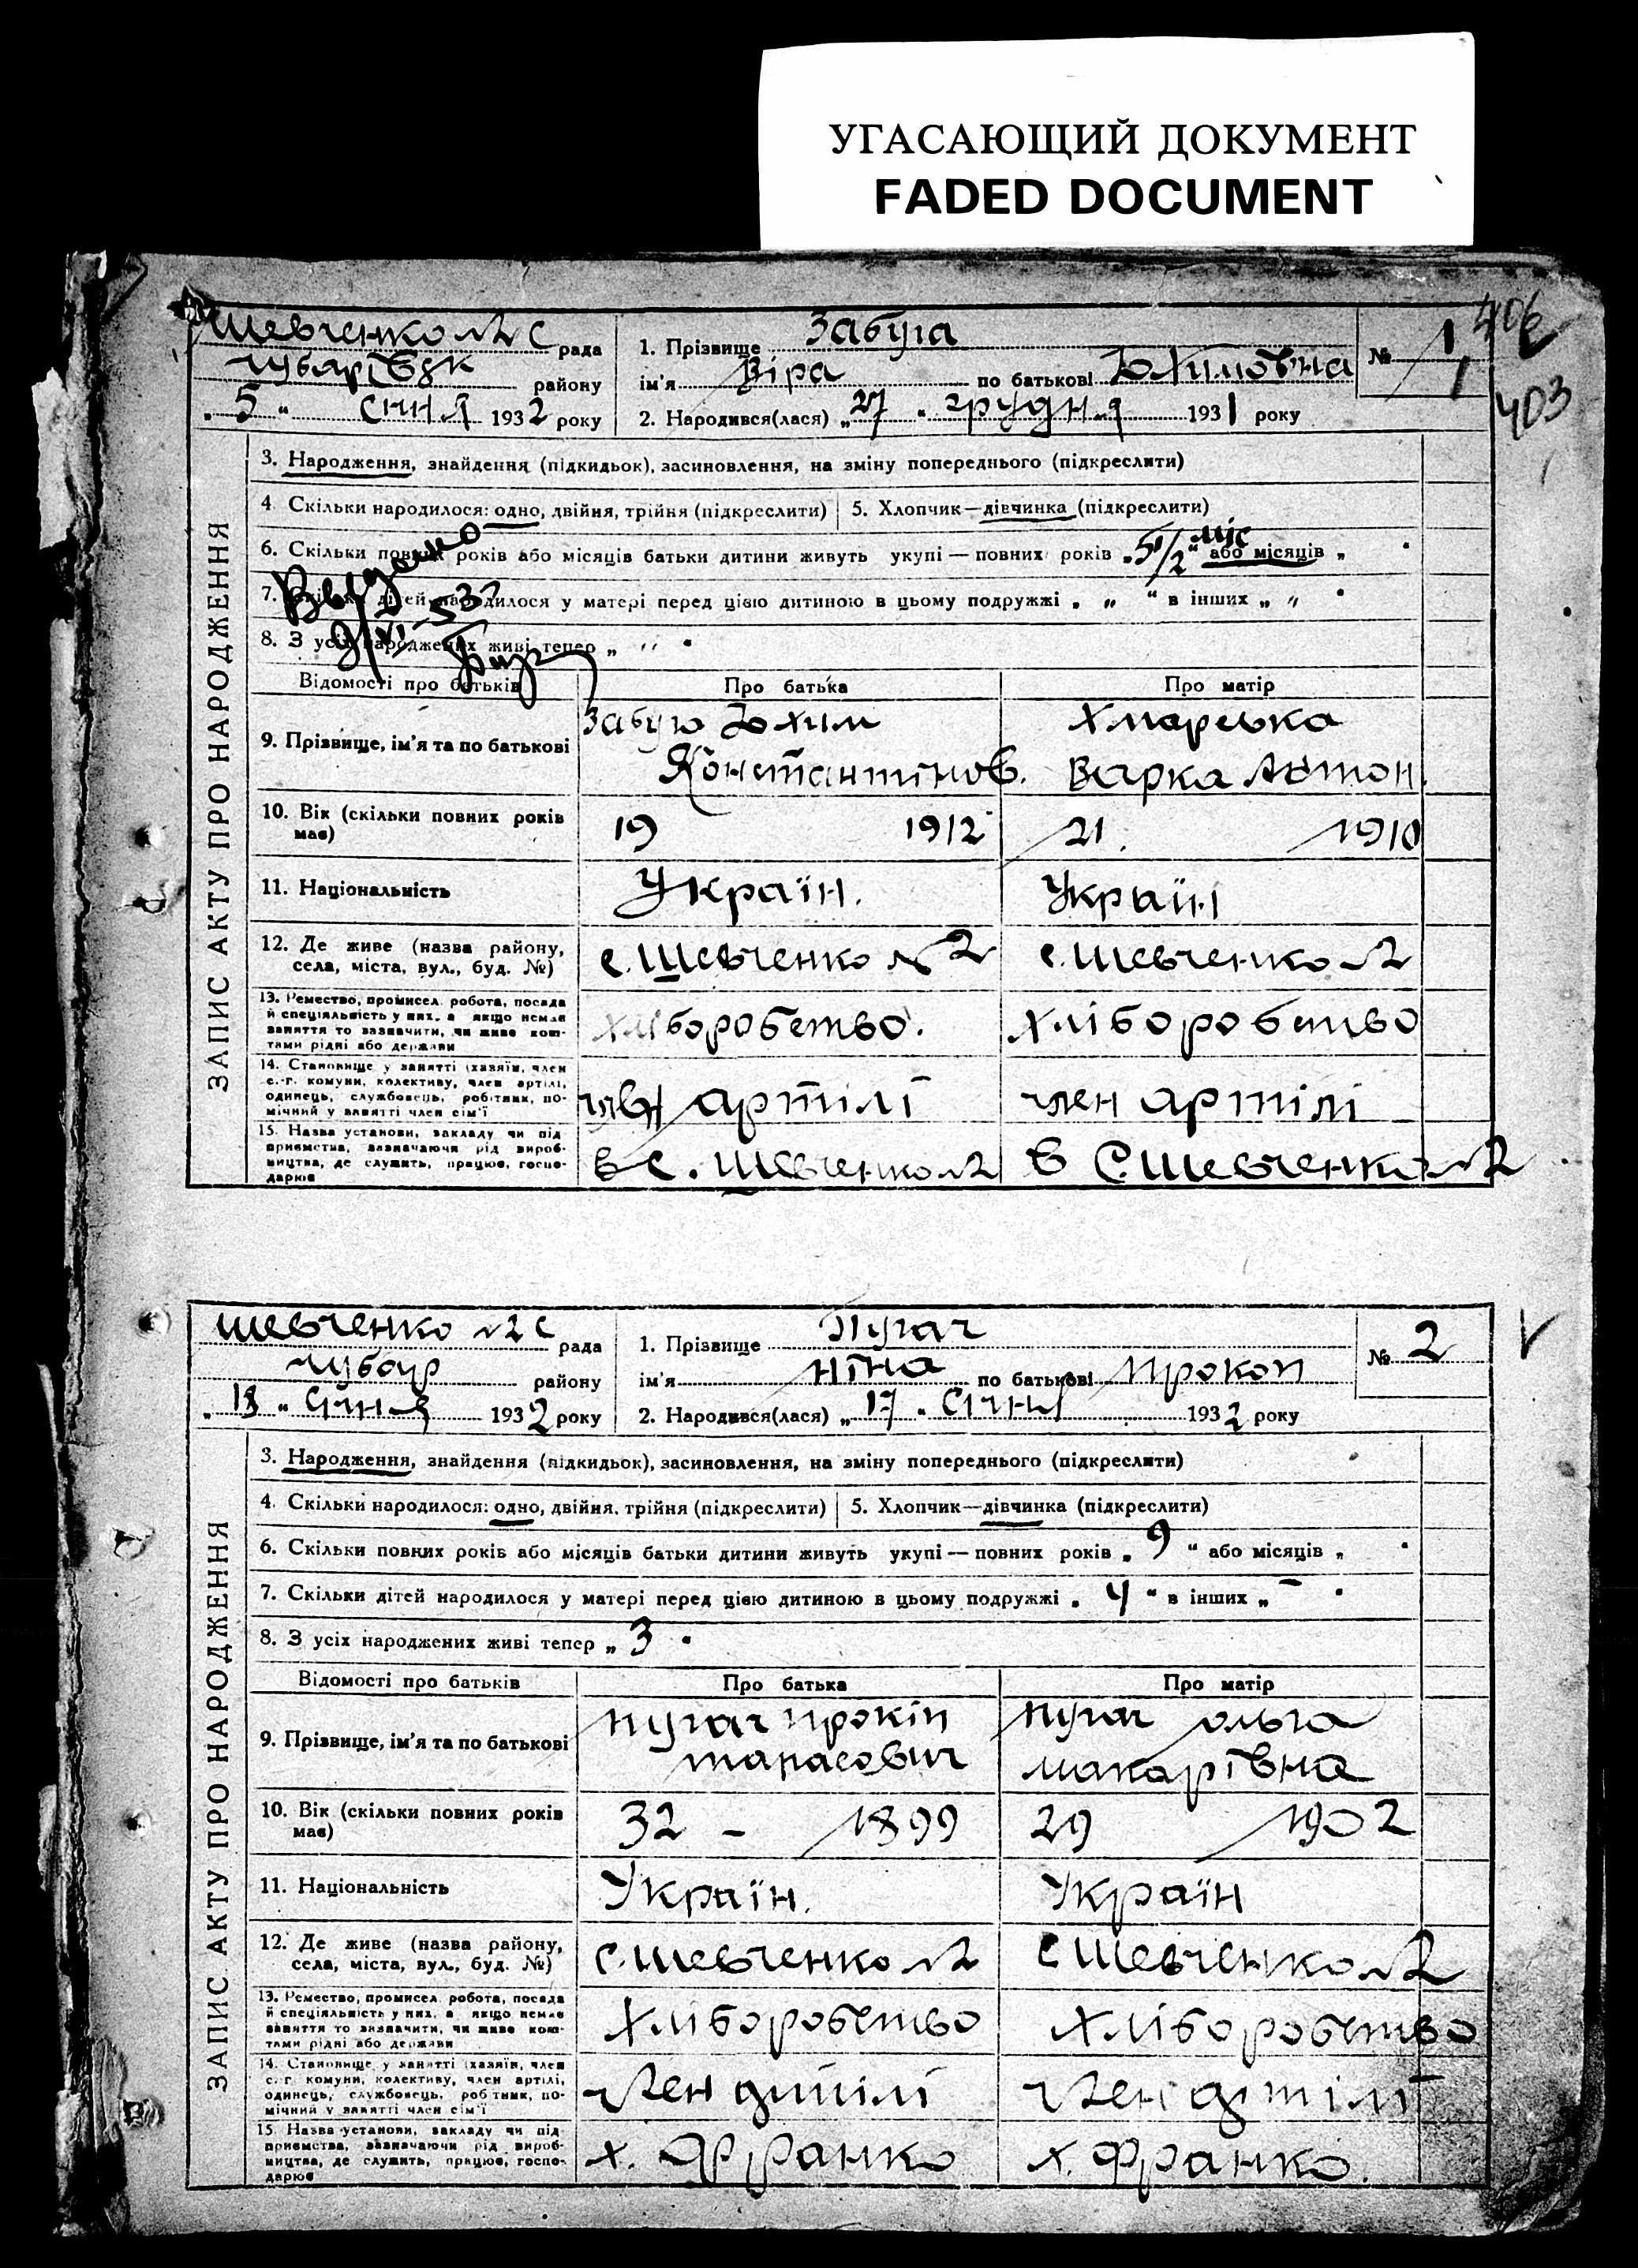 УГАСАЮЩИЙ ДОКУМЕНТ
FADED DOCUMENT
406
403
ЗАПИС АКТУ ПРО НАРОДЖЕННЯ
Шевченко №2 с рада
району
„5“ 1932 року
1. Прізвище Забуга
ім'я Віра по батькові Юхимовна
2. Народився(лася) „27“ грудня 1931 року
№ 1
3. Народження, знайдення (підкидьок), засиновлення, на зміну попереднього (підкреслити)
4. Скільки народилося: одно, двійня, трійня (підкреслити)
5. Хлопчик—дівчинка (підкреслити)
6. Скільки повних років або місяців батьки дитини живуть укупі — повних років „5 1/2“ міс або місяців „ “
7. дітей народилося у матері перед цією дитиною в цьому подружжі „ „ “ в інших „ „ “
8. З усіх народжених живі тепер „ “
Відомості про батьків
Про батька
Про матір
9. Прізвище, ім'я та по батькові
Забуга Юхим
Константинов.
Хмарська
Варка Антон.
10. Вік (скільки повних років має)
19 1912
21. 1910
11. Національність
Україн.
Україн
12. Де живе (назва району, села, міста, вул., буд. №)
с. Шевченко №2
с. Шевченко №2
13. Ремество, промисел, робота, посада
й спеціяльність у них, а якщо немає
заняття то зазначити, чи живе кош-
тами рідні або держави
Хліборобство.
Хліборобство
14. Становище у занятті (хазяїн, член
с.-г. комуни, колективу, член артілі,
одинець, службовець, робітник, по-
мічний у занятті член сім'ї
член артілі
член артілі
15. Назва установи, закладу чи під
приємства, зазначаючи рід вироб-
ництва, де служить, працює, госпо-
дарює
в с. Шевченко №2
в с. Шевченко №2
ЗАПИС АКТУ ПРО НАРОДЖЕННЯ
Шевченко №2 с рада
Чубар району
„18“ Січня 1932 року
1. Прізвище Пугач
ім'я Ніна по батькові Прокоп
2. Народився(лася) „17“ Січня 1932 року
№ 2
3. Народження, знайдення (підкидьок), засиновлення, на зміну попереднього (підкреслити)
4. Скільки народилося: одно, двійня, трійня (підкреслити)
5. Хлопчик—дівчинка (підкреслити)
6. Скільки повних років або місяців батьки дитини живуть укупі — повних років „9“ або місяців „ “
7. Скільки дітей народилося у матері перед цією дитиною в цьому подружжі „4“ в інших „–“
8. З усіх народжених живі тепер „3“
Відомості про батьків
Про батька
Про матір
9. Прізвище, ім'я та по батькові
Пугач Прокіп
Тарасович
Пугач Ольга
Макарівна
10. Вік (скільки повних років має)
32 – 1899
29 1902
11. Національність
Україн.
Україн
12. Де живе (назва району, села, міста, вул., буд. №)
с. Шевченко №2
с Шевченко №2
13. Ремество, промисел, робота, посада
й спеціяльність у них, а якщо немає
заняття то зазначити, чи живе кош-
тами рідні або держави
Хліборобство
Хліборобство
14. Становище у занятті (хазяїн, член
с.-г. комуни, колективу, член артілі,
одинець, службовець, робітник, по-
мічний у занятті член сім'ї
член артілі
член артілі
15. Назва установи, закладу чи під
приємства, зазначаючи рід вироб-
ництва, де служить, працює, госпо-
дарює
х. Франко
х. Франко.